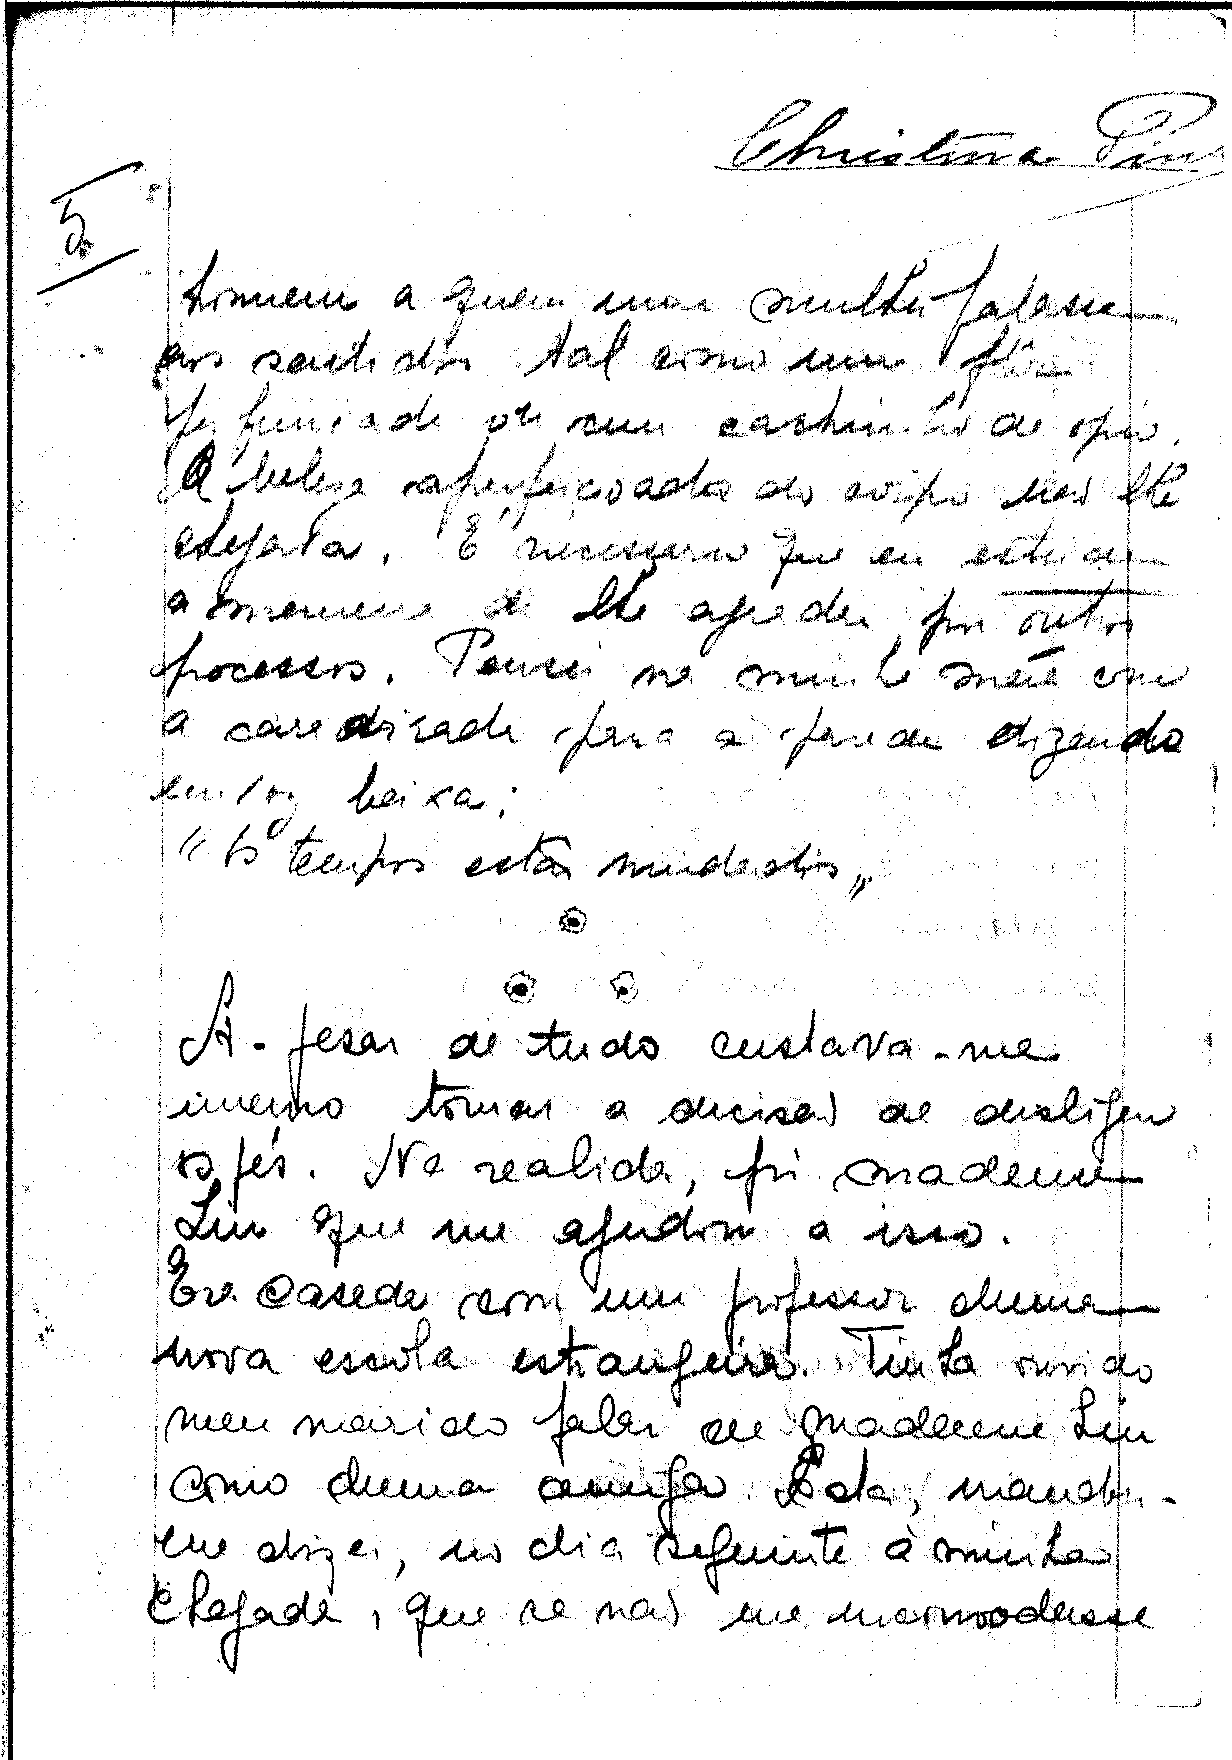 Christina Pin
5.
homem a quem uma mulher falasse
aos sentidos tal como uma flôr
perfumada ou um cachimbo de opio.
A beleza aperfeiçoada do corpo não lhe
chegava. É necessario que eu estude
a maneira de lhe agradar por outros
processos. Pensei na minha mãe com
a cara virada para a parede dizendo
em voz baixa:
"Os tempos estão mudados"
A-pesar de tudo custava-me
imenso tomar a decisão de desligar
os pés. Na realidade, foi madame
Liu que me ajudou a isso.
Era casada com um professor duma
nova escola estrangeira. Tinha ouvido
meu marido falar de madame Liu
como duma amiga. Ela, mandou-
me dizer, no dia seguinte à minha
chegada, que se não me incomodasse